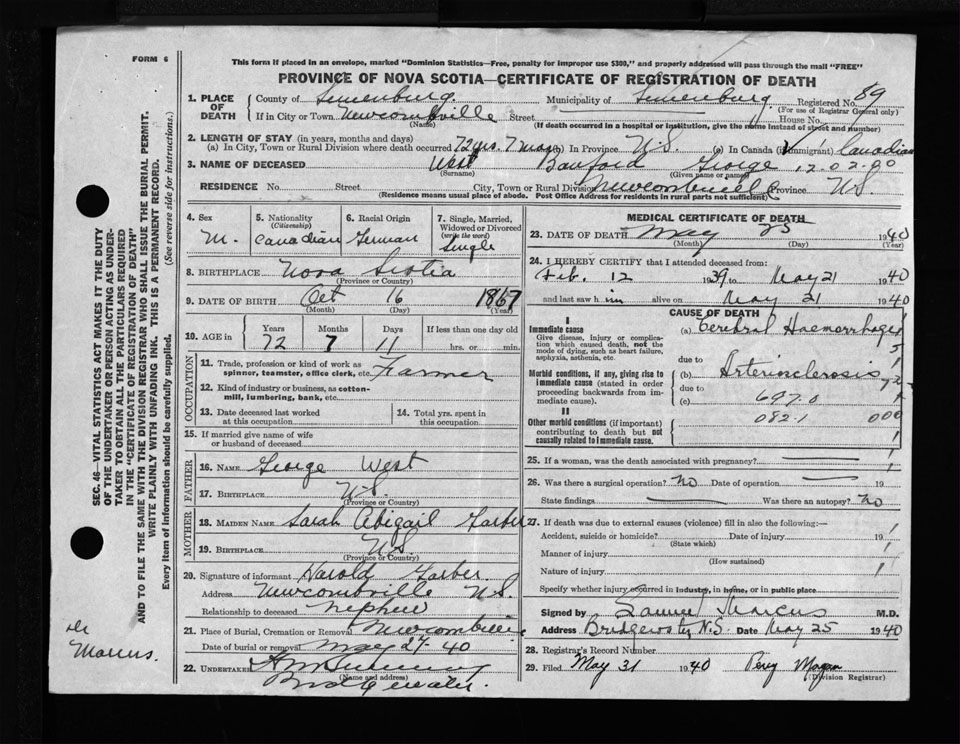 FORM 6
This form if placed in an envelope, marked "Dominion Statistics—Free, penalty for improper use $300," and properly addressed will pass through the mail "FREE"
PROVINCE OF NOVA SCOTIA—CERTIFICATE OF REGISTRATION OF DEATH
1. PLACE OF DEATH County of Lunenburg. Municipality of Lunenburg. Registered No. 89
(For use of Registrar General only)
If in City or Town Newcombville Street House No.
(Name) (If death occurred in a hospital or institution, give the name instead of street and number)
2. LENGTH OF STAY (in years, months and days)
(a) In City, Town or Rural Division where death occurred 72 yrs. 7 mos (b) In Province N.S. (c) In Canada (if immigrant) Canadian
3. NAME OF DECEASED West Banford George 12-02-90
(Surname) (Given name or names)
RESIDENCE No. Street City, Town or Rural Division Newcombville Province N.S.
(Residence means usual place of abode. Post Office Address for residents in rural parts not sufficient)
4. Sex M.
5. Nationality (Citizenship) Canadian
6. Racial Origin German
7. Single, Married, Widowed or Divorced (write the word) Single
8. BIRTHPLACE Nova Scotia
(Province or Country)
9. DATE OF BIRTH Oct 16 1867
(Month) (Day) (Year)
10. AGE in Years 72 Months 7 Days 11 If less than one day old hrs. or min.
OCCUPATION
11. Trade, profession or kind of work as spinner, teamster, office clerk, etc. Farmer
12. Kind of industry or business, as cotton-mill, lumbering, bank, etc.
13. Date deceased last worked at this occupation
14. Total yrs. spent in this occupation
15. If married give name of wife or husband of deceased
FATHER
16. NAME George West
17. BIRTHPLACE N.S.
(Province or Country)
MOTHER
18. MAIDEN NAME Sarah Abigail Garber
19. BIRTHPLACE N.S.
(Province or Country)
20. Signature of informant Harold Garber.
Address Newcombville N.S.
Relationship to deceased nephew
21. Place of Burial, Cremation or Removal Newcombville
Date of burial or removal May 27-40
22. UNDERTAKER
(Name and address)
Bridgewater.
MEDICAL CERTIFICATE OF DEATH
23. DATE OF DEATH May 25 1940
(Month) (Day) (Year)
24. I HEREBY CERTIFY that I attended deceased from:
Feb. 12 1939 to May 21 1940
and last saw him alive on May 21 1940
CAUSE OF DEATH
I
Immediate cause (a) Cerebral Haemorrhage
Give disease, injury or complication which caused death, not the mode of dying, such as heart failure, asphyxia, asthenia, etc.
due to
Morbid conditions, if any, giving rise to immediate cause (stated in order proceeding backwards from immediate cause). (b) Arteriosclerosis
due to
(c) 697.0
II
082.1 000
Other morbid conditions (if important) contributing to death but not causally related to immediate cause.
25. If a woman, was the death associated with pregnancy?
26. Was there a surgical operation? No Date of operation 19
State findings Was there an autopsy? No
27. If death was due to external causes (violence) fill in also the following:—
Accident, suicide or homicide? Date of injury 19
(State which)
Manner of injury
(How sustained)
Nature of injury
Specify whether injury occurred in industry, in home, or in public place
Signed by Samuel Marcus M.D.
Address Bridgewater N.S. Date May 25 1940
28. Registrar's Record Number
29. Filed May 31 1940 Percy
(Division Registrar)
SEC. 46—VITAL STATISTICS ACT MAKES IT THE DUTY
OF THE UNDERTAKER OR PERSON ACTING AS UNDER-
TAKER TO OBTAIN ALL THE PARTICULARS REQUIRED
IN THE "CERTIFICATE OF REGISTRATION OF DEATH"
AND TO FILE THE SAME WITH THE DIVISION REGISTRAR WHO SHALL ISSUE THE BURIAL PERMIT.
WRITE PLAINLY WITH UNFADING INK. THIS IS A PERMANENT RECORD.
Every item of information should be carefully supplied. (See reverse side for instructions.)
Dr
Marcus.